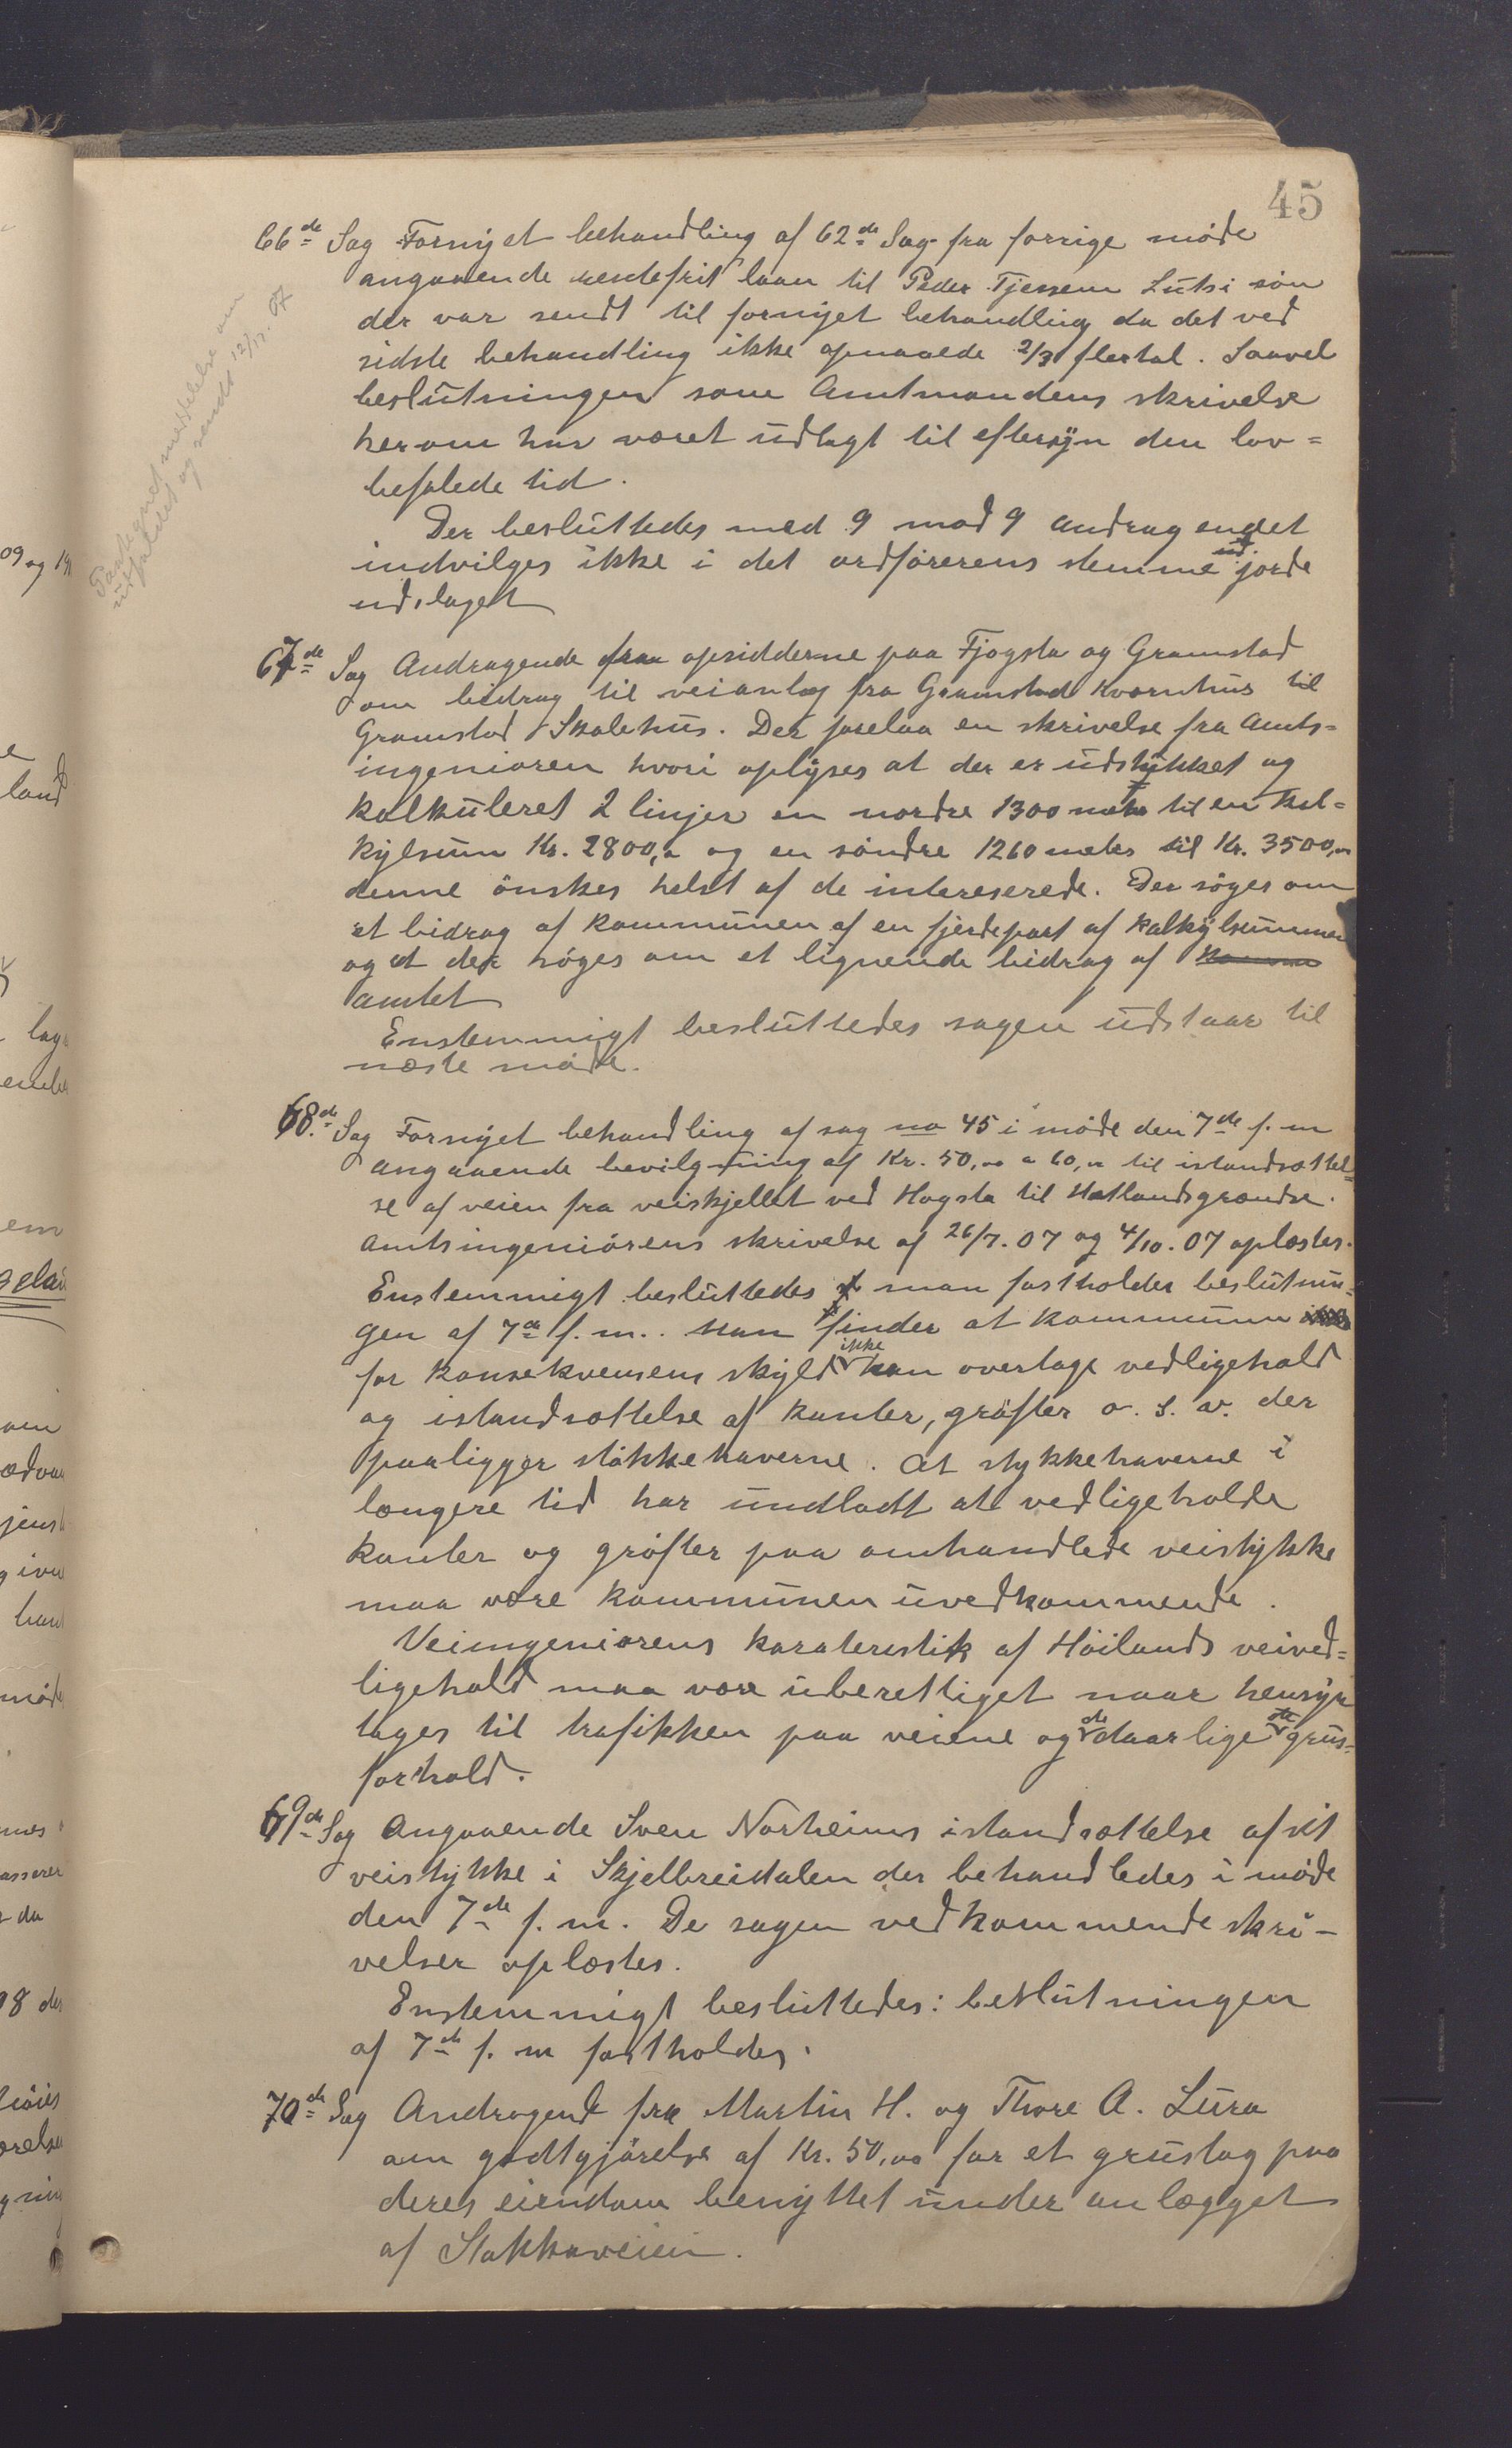 45
66de Sag Fornyet behandling af 62de Sag fra forrige møde
angaaende rentefrit laan til Peder Tjessem Lutsi søn
der var sendt til fornyet behandling da det ved
sidste behandling ikke opnaaede 2/3 flertal. Saavel
beslutningen som Amtmandens skrivelse
herom har været udlagt til eftersyn den lov=
befalede tid.
Der besluttedes med 9 mod 9 andragendet
indvilges ikke i det ordførerens stemme gjorde
udslaget
67de Sag Andragende fra opsidderne paa Fjogsta og Gramstad
om bidrag til veianlæg fra Gramstad kvernhus til
Gramstad Skolehus. Der forelaa en skrivelse fra Amts=
ingeniøren hvori oplyses at der er udstykket og
kalkuleret 2 linjer en nordre 1300 meter til en kal=
kylsum Kr. 2800,00 og en søndre 1260 meter til Kr. 3500,00
denne ønskes helst af de intereserede. Der søges om
et bidrag af kommunen af en fjerdepart af kalkylsummen
og at der søges om et lignende bidrag af
amtet
Enstemmigt besluttedes sagen udstaar til
næste møde.
68de Sag Fornyet behandling af sag no 45 i møde den 7de f. m
angaaende bevilgning af Kr. 50,00 a 60,00 til istandsættel=
se af veien fra veiskjellet ved Hogsta til Hatlandsgrændse.
Amtsingeniørens skrivelse af 26/7. 07 og 4/10. 07 oplæstes.
Enstemmigt besluttedes at man fastholder beslutnin=
gen af 7de f. m.. Man finder at kommunen
for konsekvensens skyld ikke kan overtage vedligehold
og istandsættelse af kanter, grøfter o. s. v. der
paaligger stykkehaverne. At stykkehaverne i
længere tid har undladt at vedligeholde
kanter og grøfter paa omhandlede veistykke
maa være kommunen uvedkommende.
Veiingeniørens karateristik af Høilands veived=
ligehold maa være uberettiget naar hensyn
tages til trafikken paa veiene og de daarlige grus=
forhold.
69de Sag Angaaende Sven Norheims istandsættelse af sit
veistykke i Skjelbreidalen der behandledes i møde
den 7de f. m. De sagen vedkommende skri-
velser oplæstes.
Enstemmigt besluttedes: beslutningen
af 7de f. m fastholdes.
70de Sag Andragende fra Martin H. og Thore A. Lura
om godtgjørelse af Kr. 50,00 for et grustag paa
deres eiendom benyttet under anlægget
af Stokkaveien.